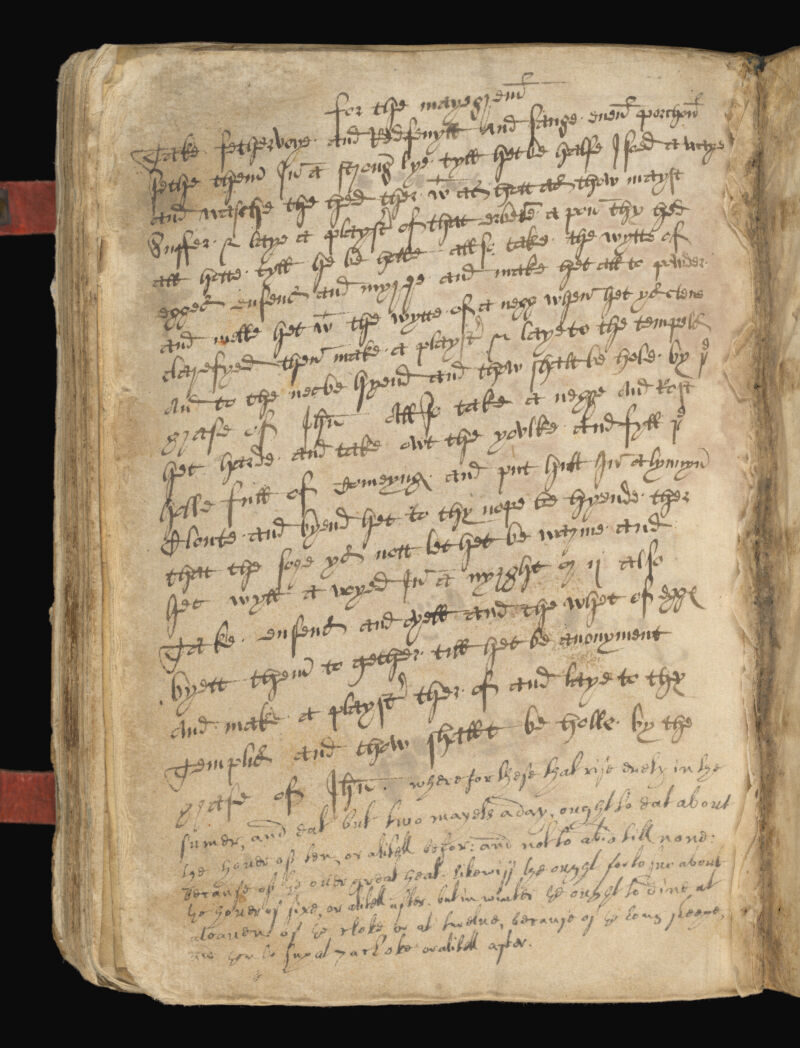 for the mayegrem
Take fethervoye and Redfenyll and sauge even porchon
sethe them In a strong lye tyll het be halfe I sod awaye
and wasche the hed ther wt as hott as thow mayst
Suffer & laye a playster of that erbes a pon thy hed
all hotte tyll he be hole allso take the wytte of
egges ensens and myrre and make het all to powder
and melle het wt the wytte of a negg when het ys clene
claryfyed then make a playster & laye to the tempels
and to the necke hyend and thow shalt be hole by ye
grase of Jhu Allso take a negge and Rost
het harde and take owt the yovlke and fyll ye
holle full of comeyng and put hitt In a lynnyn
Cloute and byend het to thy nope be hyende ther
that the sore ys nott let het be warme and
het wyll a woyed In a nyght or ij also
Take ensens and and the whet of egge
byett them to gether till het be anonyment
and make a playster ther of and laye to thy
Templis and thow shallt be holle by the
grase of Jhu. wherefor these that rise erely in the
sumer, and eat but two mayels a day, ought to eat about
the houer of ten, or alitell befor: and not to abio till none:
because of the ouer great heat. likewiss he ought for to sup about
the houer of sixe, or alitell after. but in winter he ought to dine at
aleauen of the cloke or at twelue, because of the long sleepe,
and to sup at cloke or alitell after.